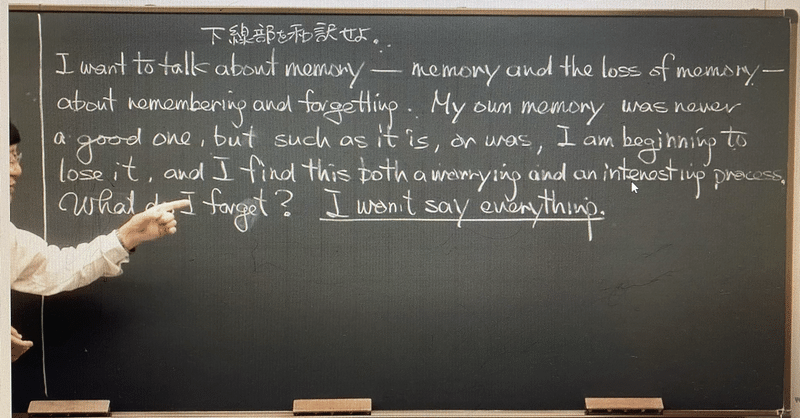 下線部を和訳せよ.
I want to talk about memory — memory and the loss of memory —
about remembering and forgetting. My own memory was never
a good one, but such as it is, or was, I am beginning to
lose it, and I find this both a worrying and an interesting process.
What do I forget? I won't say everything.